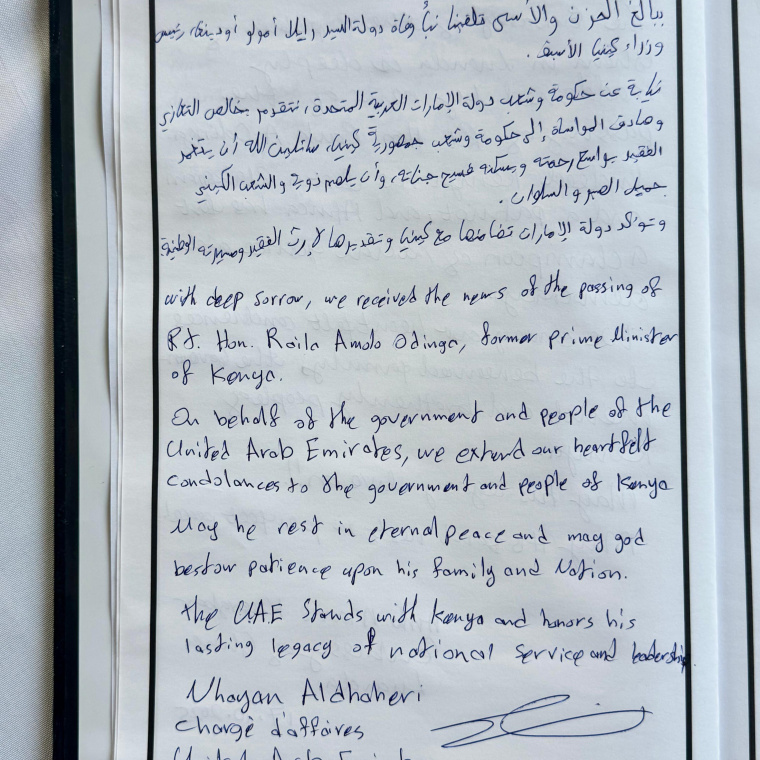 ببالغ الحزن والأسى تلقينا نبأ وفاة دولة السيد رايلا أمولو أودينغا، رئيس
وزراء كينيا الأسبق.
نيابة عن حكومة وشعب دولة الإمارات العربية المتحدة، نتقدم بخالص التعازي
وصادق المواساة إلى حكومة وشعب جمهورية كينيا، سائلين الله أن يتغمد
الفقيد بواسع رحمته ويسكنه فسيح جناته، وأن يلهم ذويه والشعب الكيني
جميل الصبر والسلوان.
وتؤكد دولة الإمارات تضامنها مع كينيا وتقديرها لإرث الفقيد ومسيرته الوطنية.
with deep sorrow, we received the news of the passing of
Rt. Hon. Raila Amolo Odinga, former prime Minister
of Kenya.
On behalf of the government and people of the
United Arab Emirates, we extend our heartfelt
condolances to the government and people of Kenya
May he rest in eternal peace and may god
bestow patience upon his family and Nation.
the UAE Stands with Kenya and honors his
lasting legacy of national service and leadership.
Nhayan Aldhaheri
Chargè d'affaires
United Arab Emirates